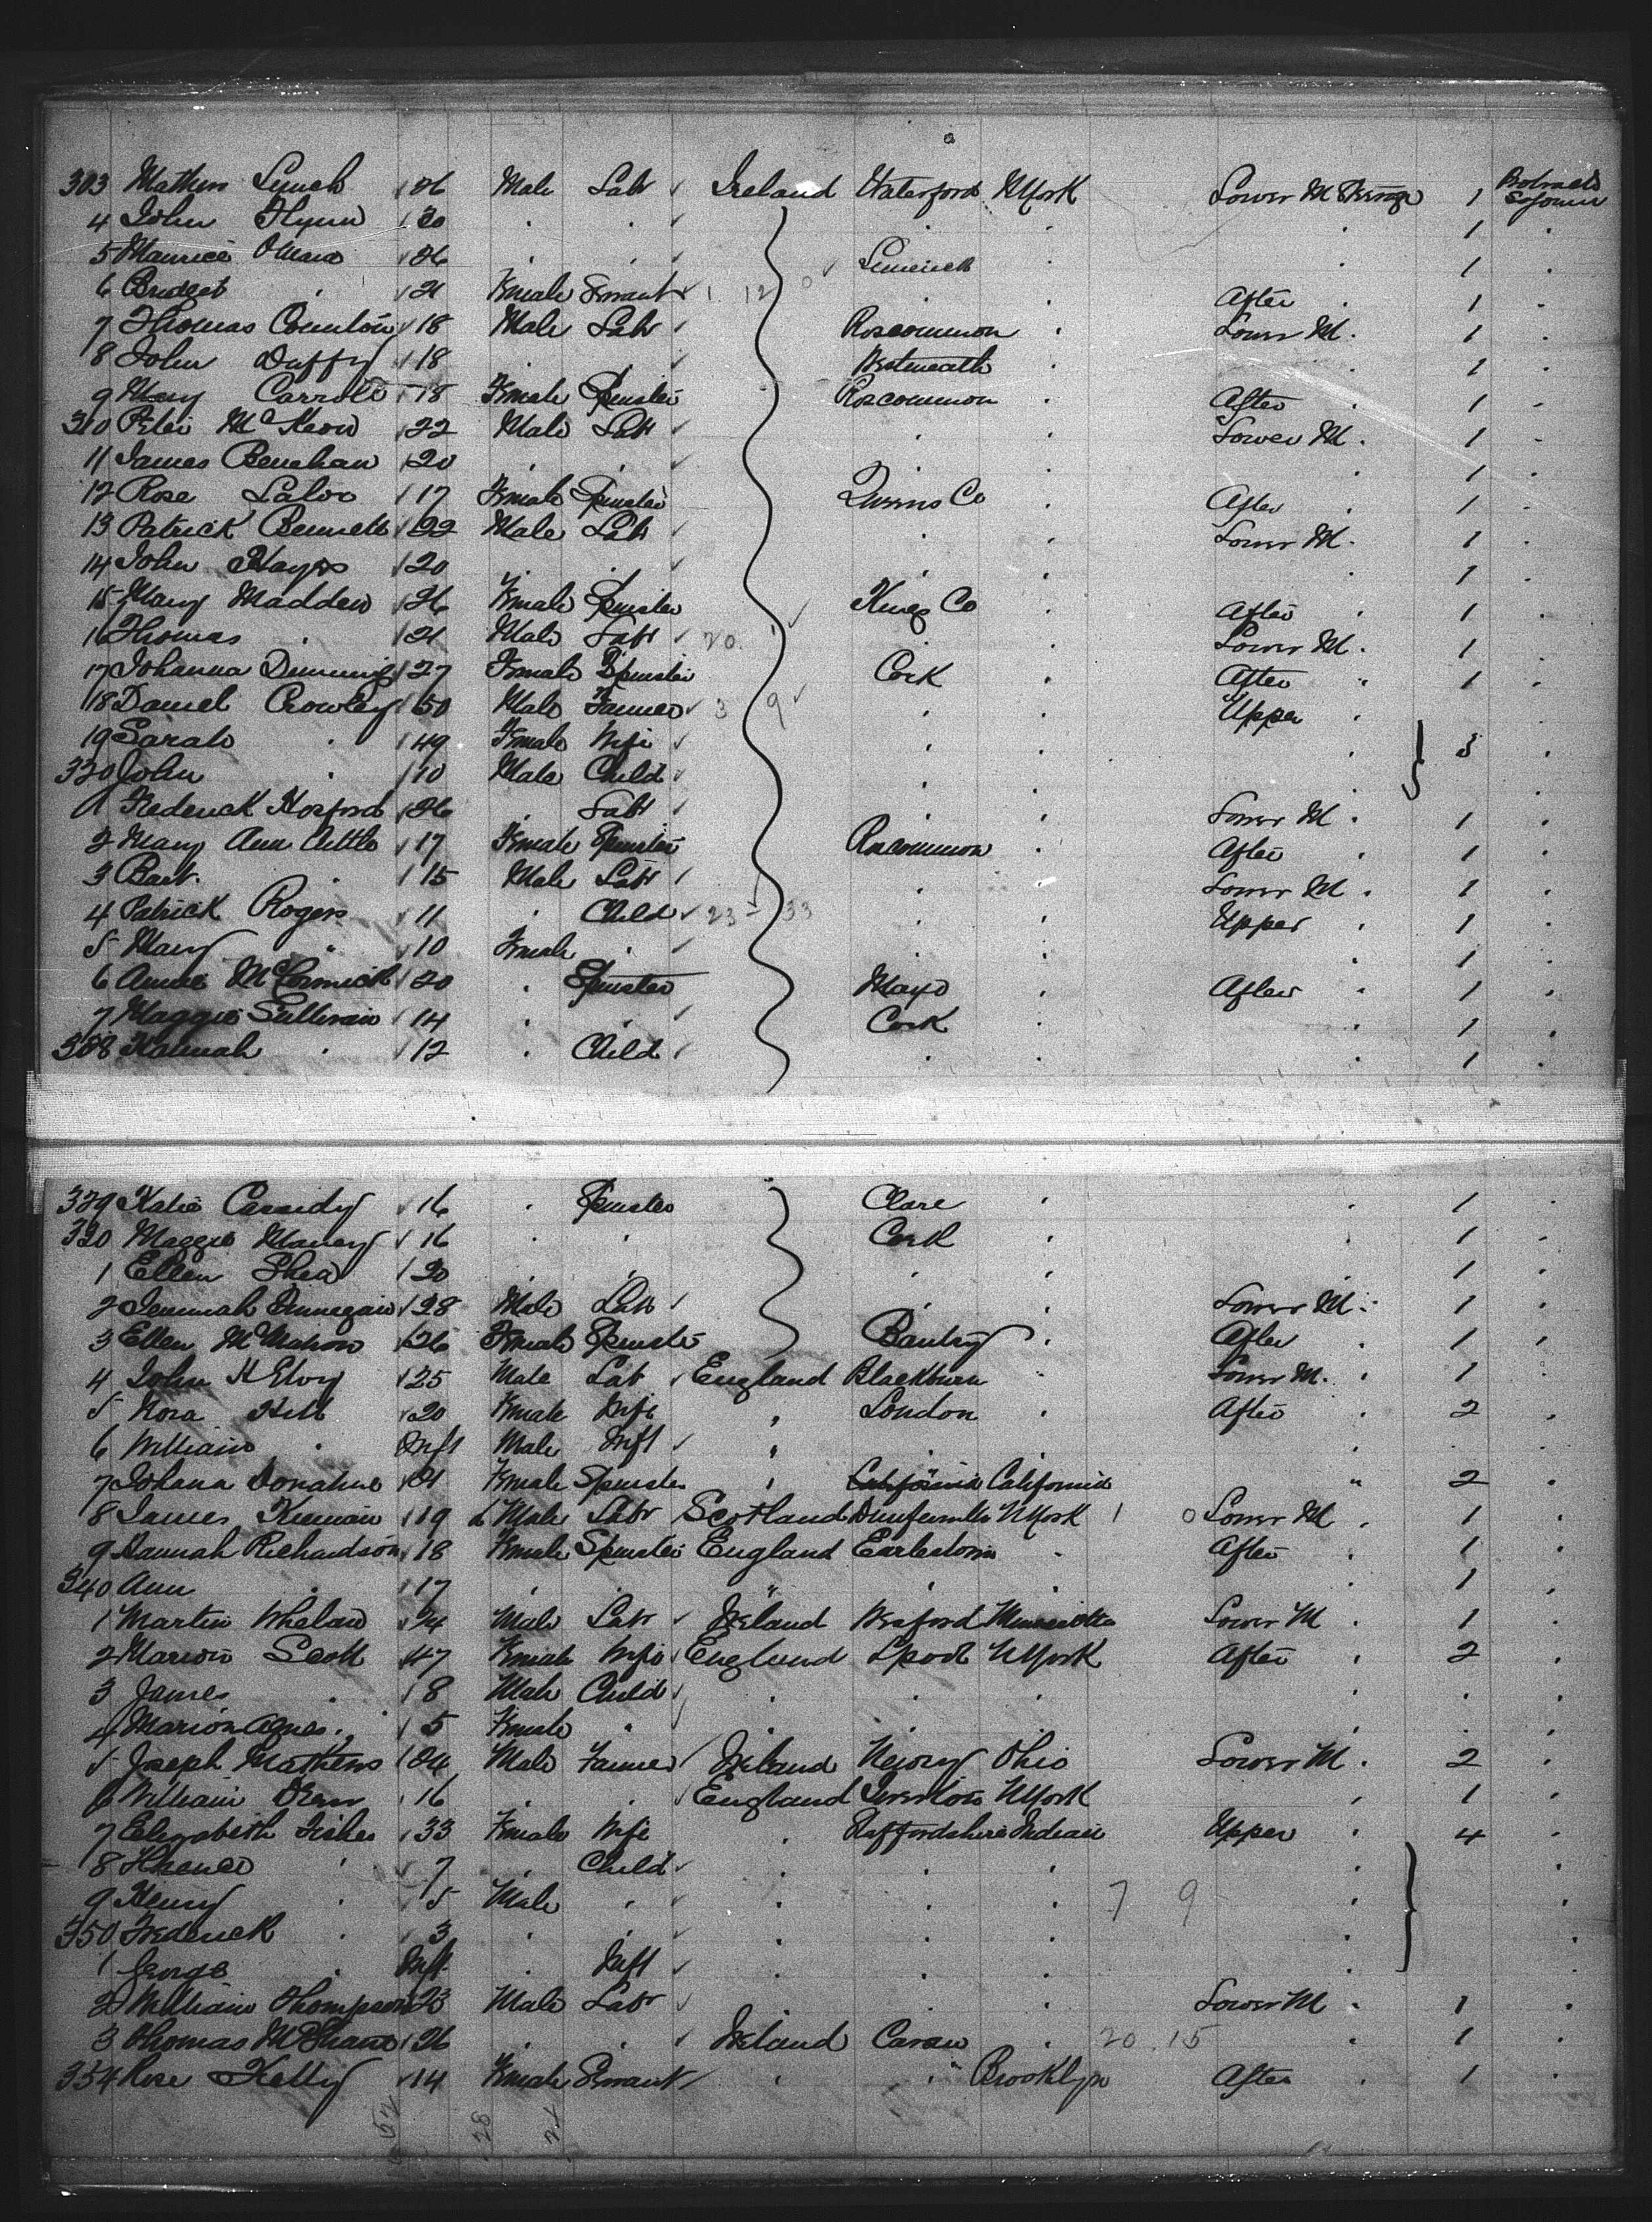 303 Mathew Lynch 26 Male Labr Ireland Waterford N York Lower M Steerage 1 Protracted Sojourn
4 John Flynn 20 " " " " " 1 "
5 Maurice OMara 26 " " Limerick " " 1 "
6 Bridget " 21 Female Servant 1 12 " " After " 1 "
7 Thomas 18 Male Labr Roscommon " Lower M " 1 "
8 John Duffy 18 " " Westmeath " " 1 "
9 Mary Carroll 18 Female Spinster Roscommon " After " 1 "
310 Peter McKeon 22 Male Labr " " Lower M " 1 "
11 James 20 " " " " " 1 "
12 Rose Lalor 17 Female Spinster Queens Co " After " 1 "
13 Patrick Bennett 22 Male Labr " " Lower M " 1 "
14 John Hayes 20 " " " " " 1 "
15 Mary Madden 26 Female Spinster Kings Co " After " 1 "
16 Thomas " 21 Male Labr 20 " " Lower M " 1 "
17 Johanna 27 Female Spinster Cork " After " 1 "
18 Daniel Crowley 50 Male Farmer 3 9 " " Upper "
19 Sarah " 49 Female Wife " " " 3 "
320 John " 10 Male Child " "
1 Frederick Hosford 26 " Labr " " Lower M " 1 "
2 Mary Ann 17 Female Spinster Roscommon " After " 1 "
3 Bart. " 15 Male Labr " " Lower M " 1 "
4 Patrick Rogers 11 " Child 23 33 " " Upper " 1 "
5 Mary " 10 Female " " " " 1 "
6 Annie McCormick 20 " Spinster Mayo " After " 1 "
7 Maggie Sullivan 14 " " Cork " " 1 "
328 Hannah " 12 " Child " " " 1 "
329 Katie Cassidy 16 " Spinster Clare " " 1 "
330 Maggie 16 " " Cork " " 1 "
1 Ellen Shea 20 " " " " " 1 "
2 Jeremiah Finnegan 28 Male Labr " " Lower M " 1 "
3 Ellen McMahon 26 Female Spinster Bantry " After " 1 "
4 John 25 Male Lab England Blackburn " Lower M. " 1 "
5 Nora Hill 20 Female Wife " London " After " 2 "
6 William " Inft Male Inft " " " "
7 Johana Donahue 21 Female Spinster " " California " 2 "
8 James Kiernan 19 Male Labr Scotland Dunfermlin N York 1 0 Lower M " 1 "
9 Hannah Richardson 18 Female Spinster England Earlestown " After " 1 "
340 Ann " 17 " " " " " 1 "
1 Martin Whelan 24 Male Labr Ireland Wexford Minnesotta Lower M " 1 "
2 Marion Scott 47 Female Wife England Lpool N York After " 2 "
3 James " 8 Male Child " " " " " "
4 Marion Agnes " 5 Female " " " " " " "
5 Joseph Mathews 24 Male Farmer Ireland Newry Ohio Lower M " 2 "
6 William 16 " " England N York " 1 "
7 Elizabeth Fisher 33 Female Wife " Staffordshire Indiana Upper " 4 "
8 " 7 " Child " " " " "
9 Henry " 5 Male " " " " 7 9 " "
350 Frederick " 3 " " " " " " "
1 George " Inft " Inft " " " " "
2 William Thompson 23 Male Labr " " " Lower M " 1 "
3 Thomas McShane 26 " " Ireland Cavan " 20 15 " 1 "
354 Rose Kelly 14 Female Servant " " Brooklyn After " 1 "
28